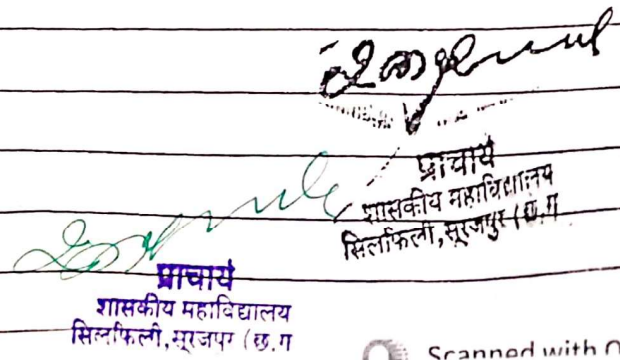 प्राचार्य
शासकीय महाविद्यालय
सिलफिली, सूरजपुर (छ.ग
प्राचार्य
शासकीय महाविद्यालय
सिलफिली, सूरजपुर (छ.ग
Scanned with